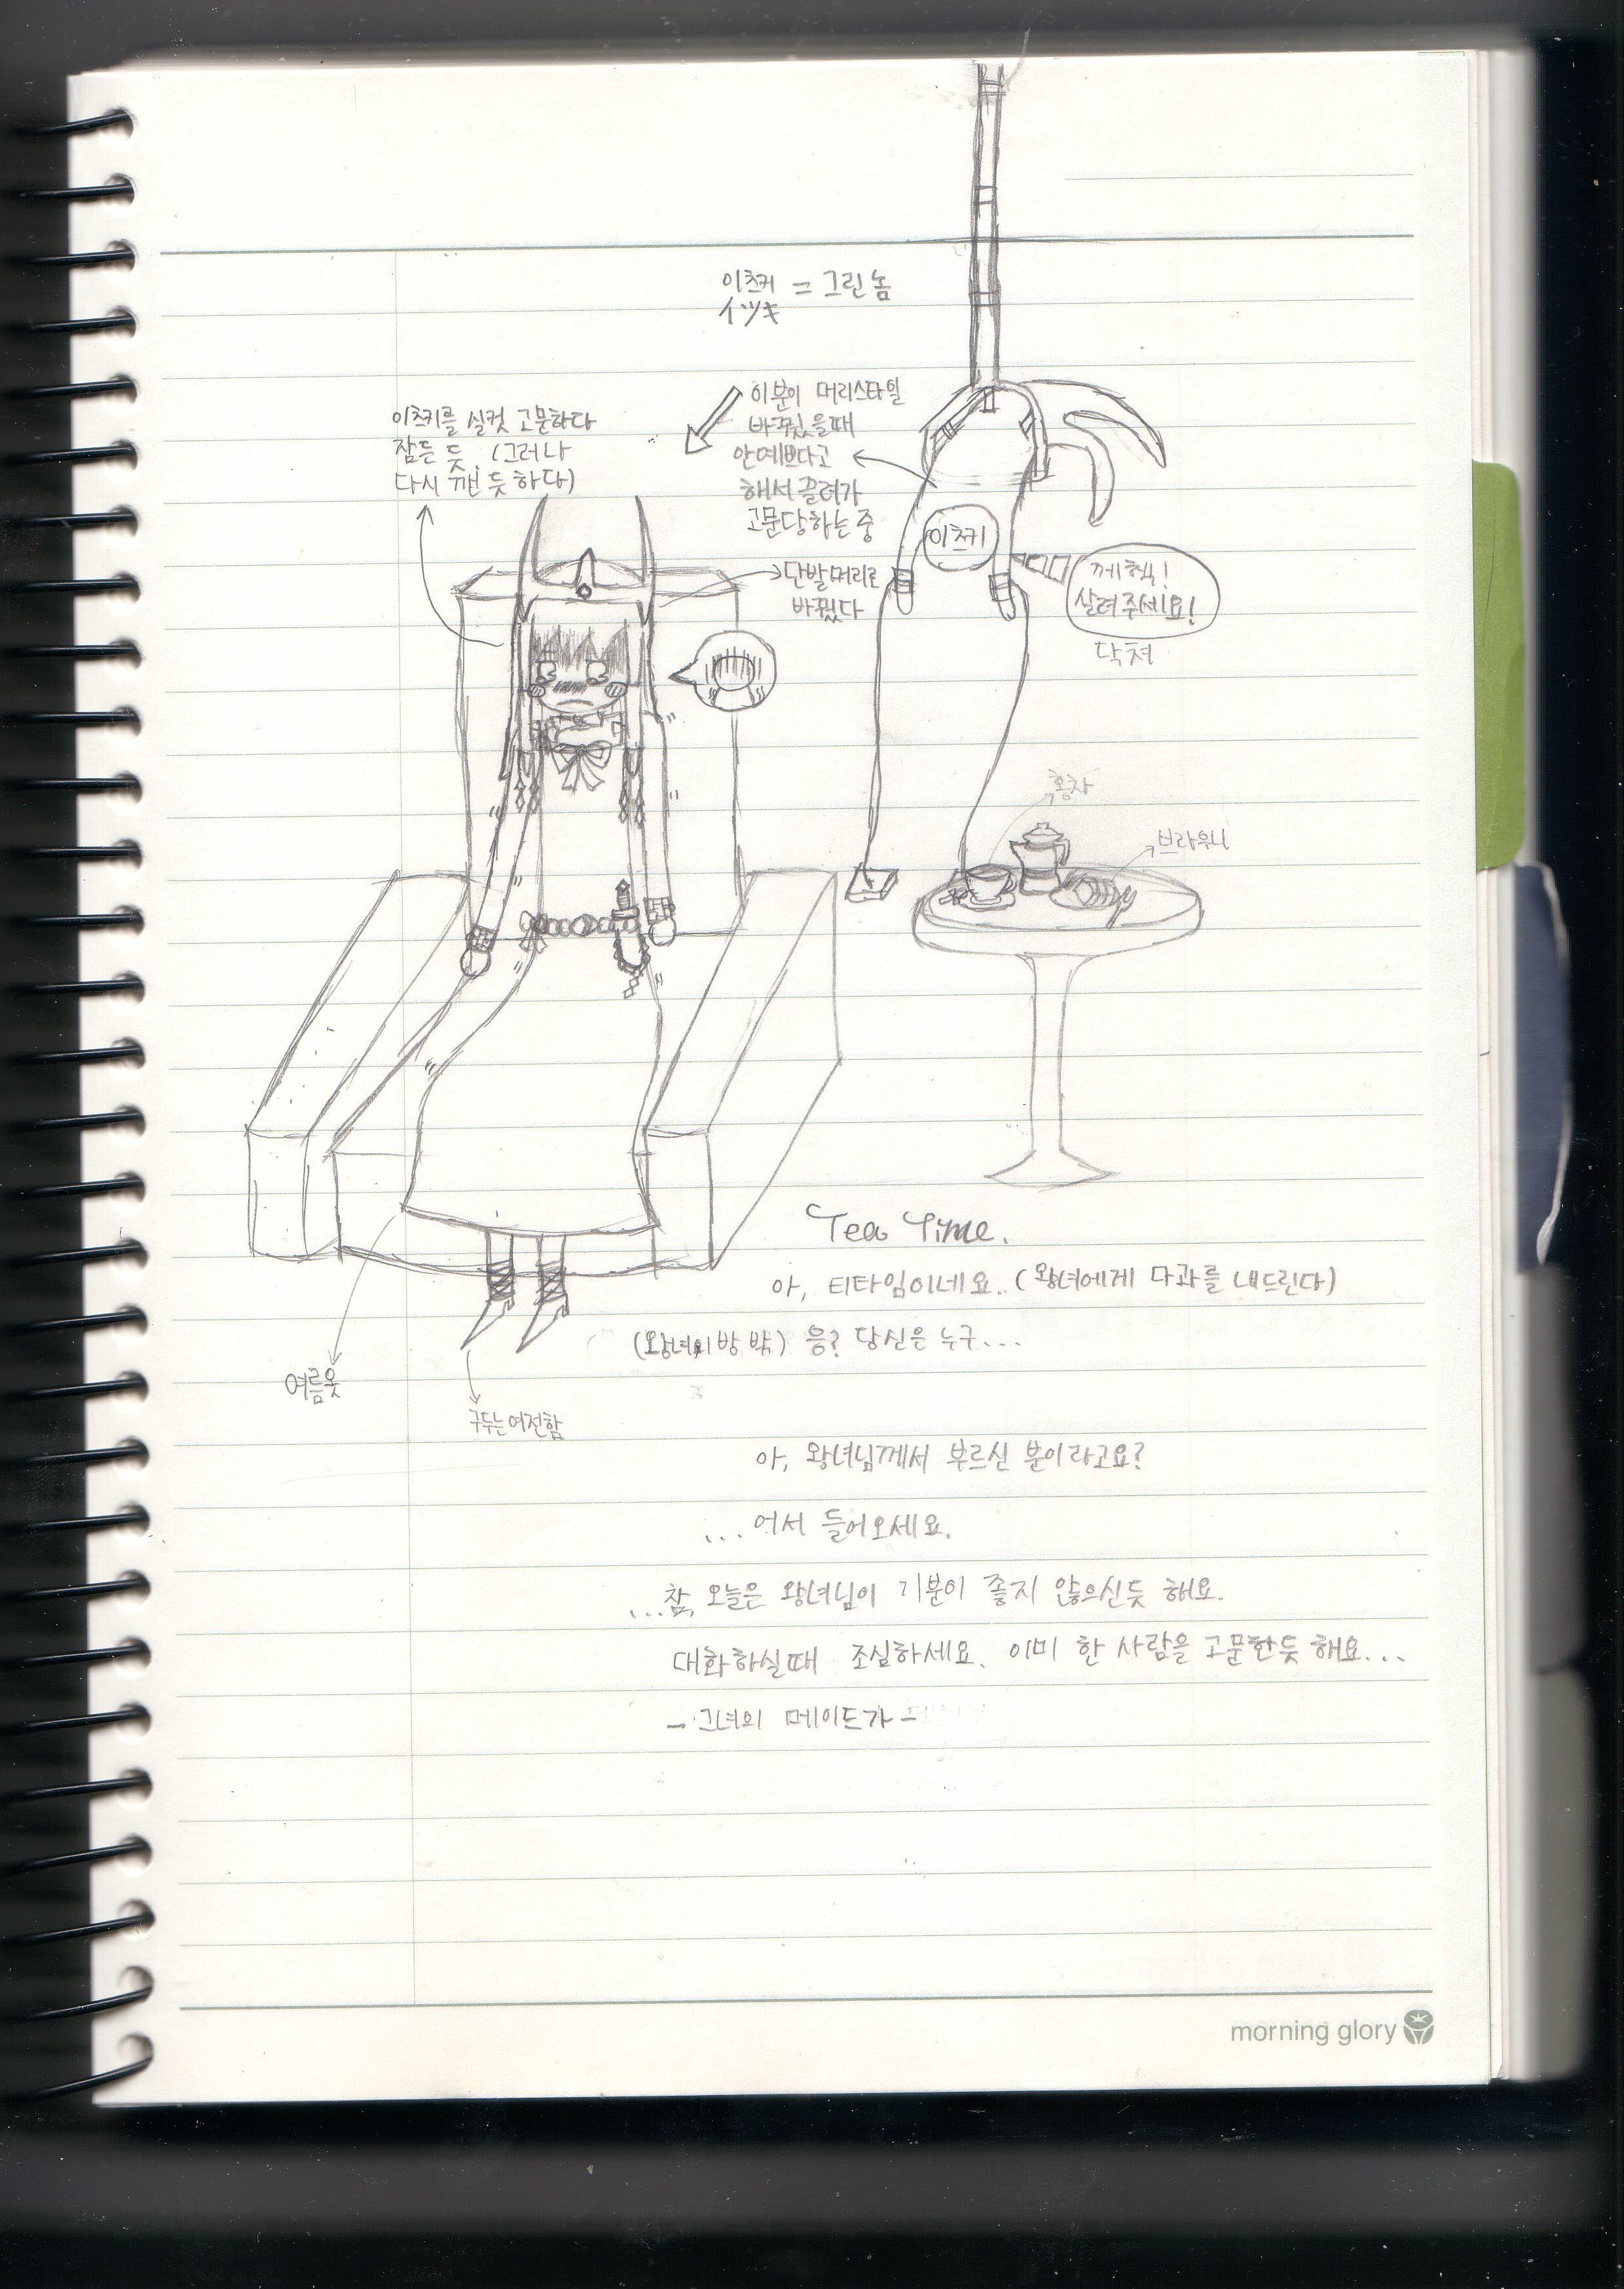 이츠키 = 그린놈
イツキ
이츠키를 실컷 고문하다
잠든 듯. (그러나
다시 깬 듯 하다)
이분이 머리스타일
바꿨을때
안예쁘다고
해서 끌려가
고문당하는 중
이츠키
께헥!
살려주세요!
닥쳐
단발머리로
바꿨다
홍차
브라우니
Tea Time.
아, 티타임이네요. (왕녀에게 다과를 내드린다)
(왕녀의 방 밖) 응? 당신은 누구...
여름옷
구두는 여전함
아, 왕녀님께서 부르신 분이라고요?
... 어서 들어오세요.
...참, 오늘은 왕녀님이 기분이 좋지 않으신듯 해요.
대화하실때 조심하세요. 이미 한 사람을 고문한듯 해요...
- 그녀의 메이드가 -
morning glory